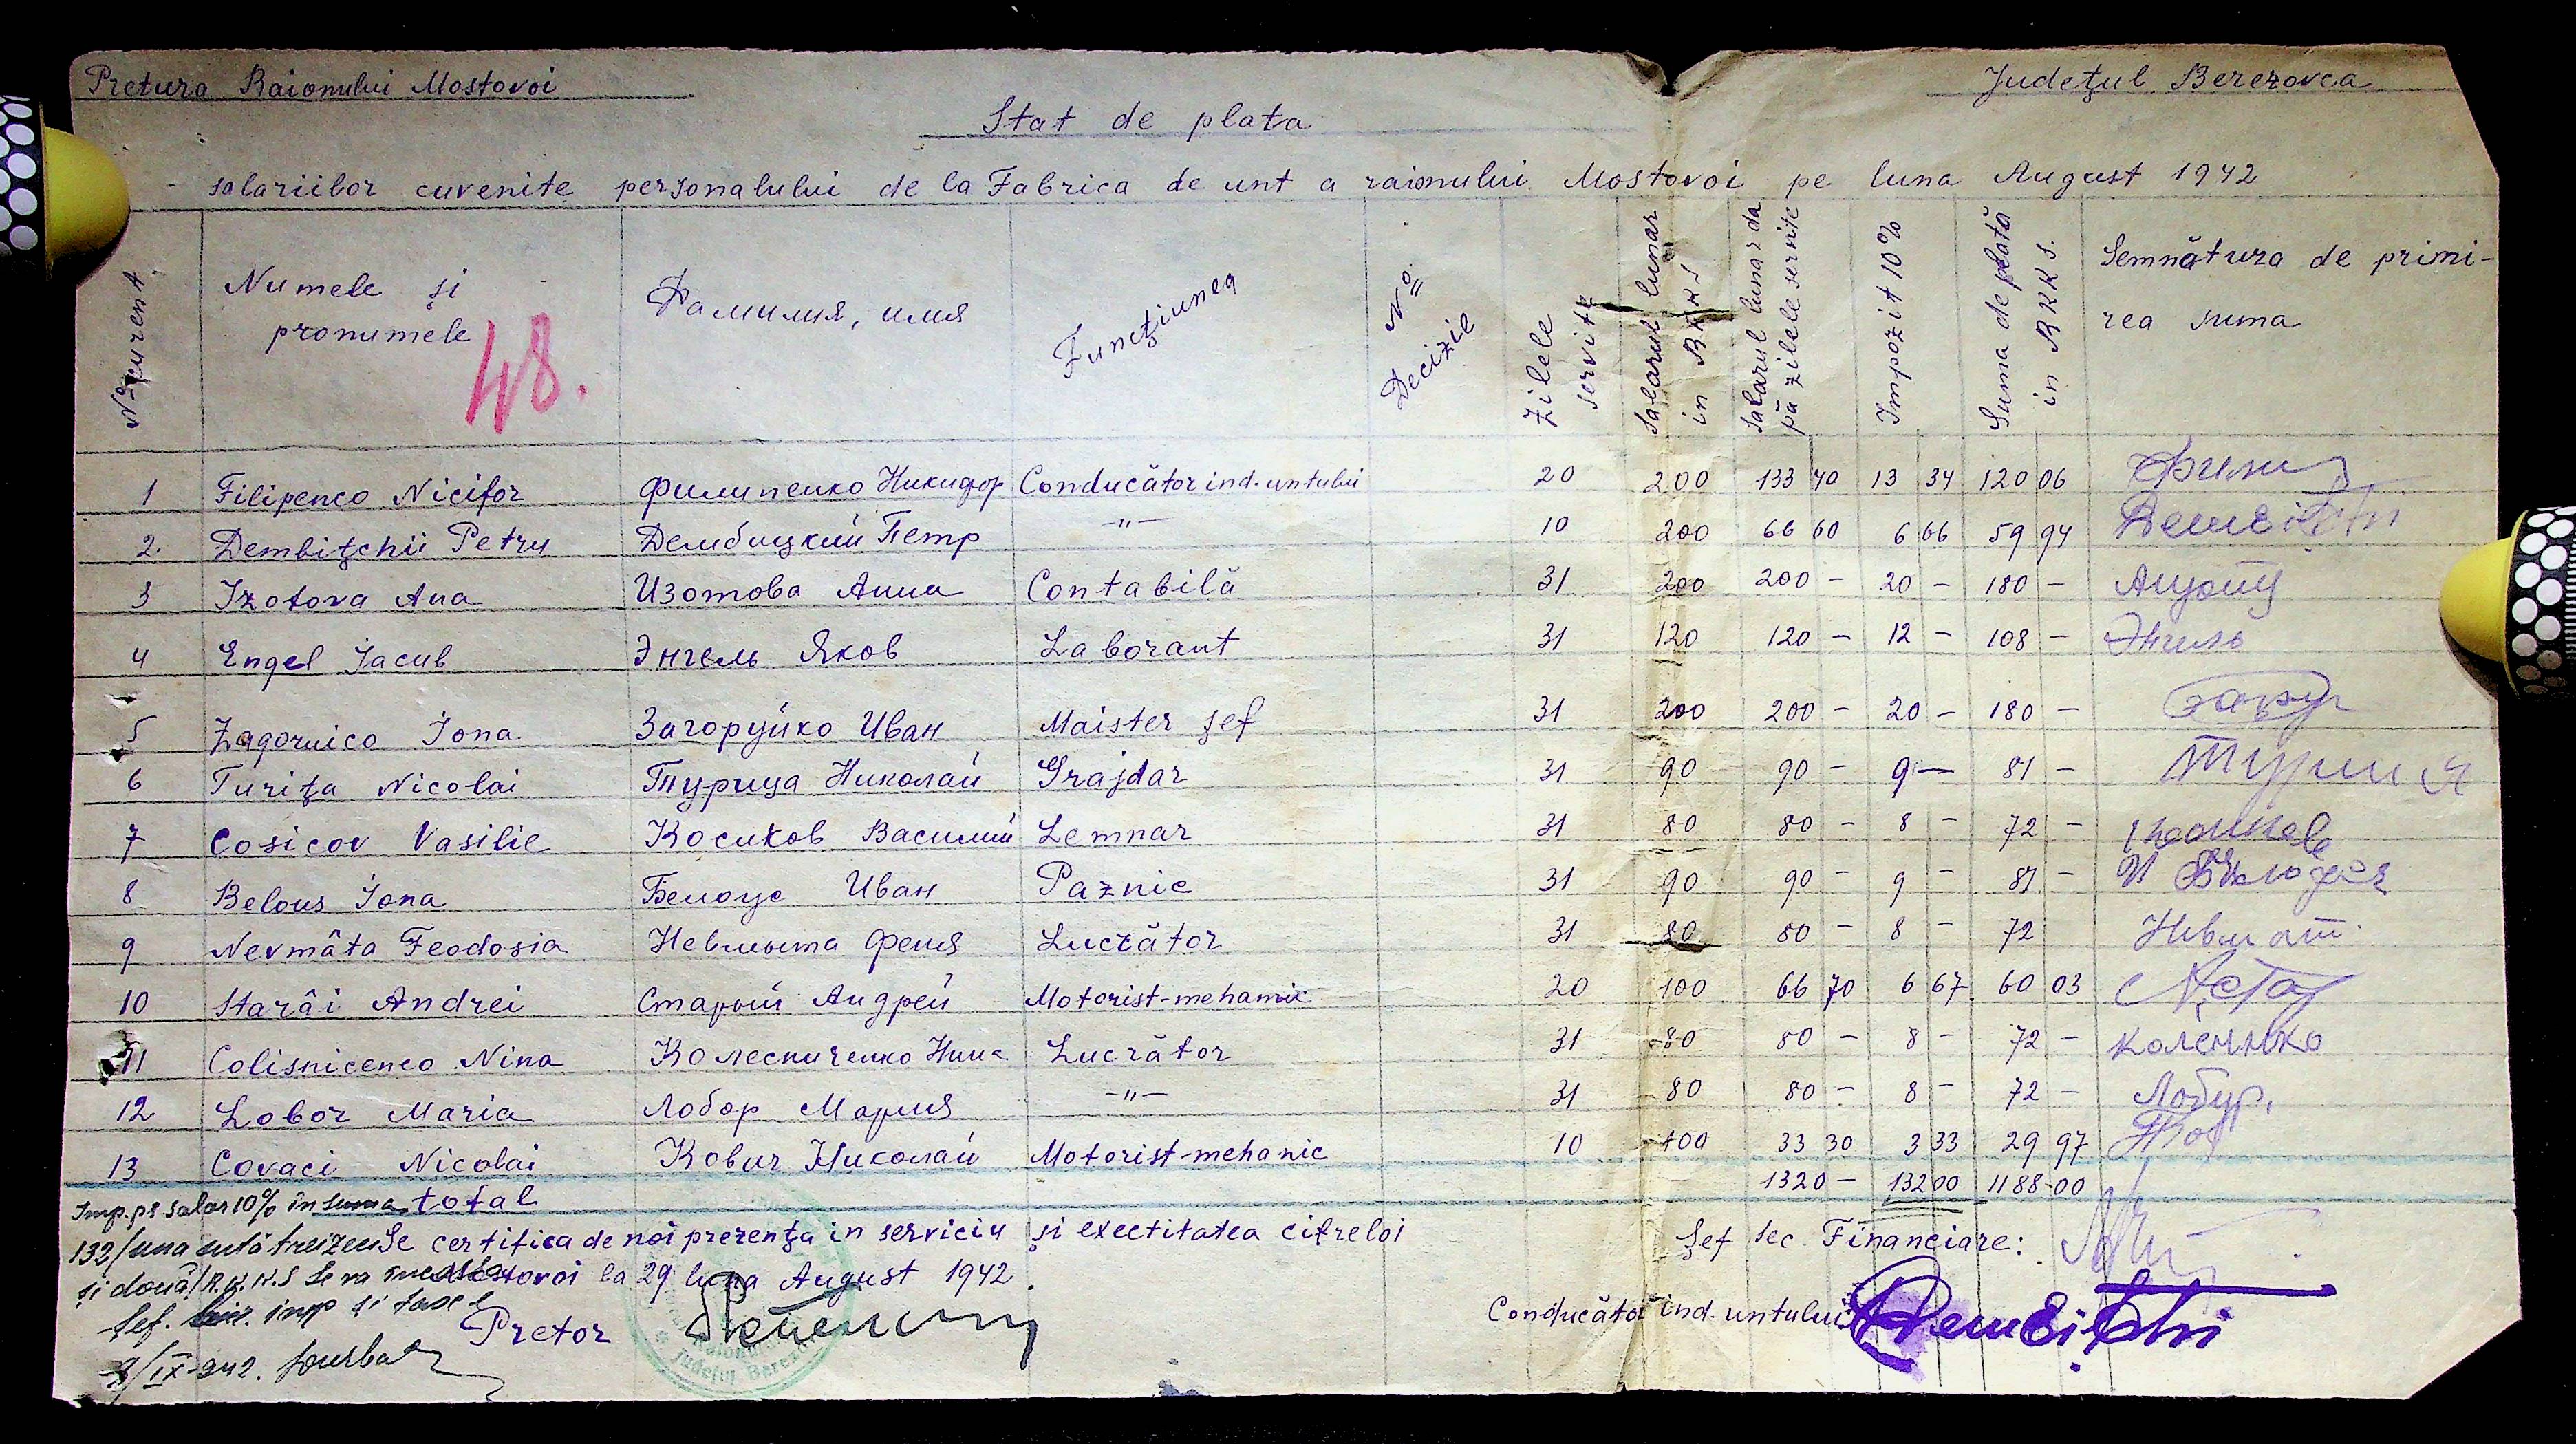 Pretura Raionului Mostovoi
Judeţul Berezovca
Stat de plata
salariilor cuvenite personalului de la Fabrica de unt a raionului Mostovoi pe luna August 1942
№ curent Numele şi pronumele Фамилия, имя Funcţiunea № Decizie Zilele servite Salariul lunar in RKKS Salariul lunar da pă zilele servite Impozit 10% Suma de plată in RKKS. Semnătura de primirea suma
48.
1 Filipenco Nicifor Филипенко Никифор Conducător ind. untului 20 200 133 40 13 34 120 06
2. Dembiţchii Petru Дембицкий Петр -"- 10 200 66 60 6 66 59 94
3 Izotova Ana Изотова Анна Contabilă 31 200 200 - 20 - 180 -
4 Engel Iacub Энгель Яков Laborant 31 120 120 - 12 - 108 - Энгель
5 Zagornico Iona Загоруйко Иван Maister şef 31 200 200 - 20 - 180 -
6 Turiţa Nicolai Турица Николай Grajdar 31 90 90 - 9 - 81 -
7 Cosicov Vasilie Косиков Василий Lemnar 31 80 80 - 8 - 72 -
8 Belous Iona Белоус Иван Paznic 31 90 90 - 9 - 81 -
9 Nevmâta Feodosia Невмыта Феня Lucrător 31 80 80 - 8 - 72
10 Starâi Andrei Старый Андрей Motorist-mehanic 20 100 66 70 6 67 60 03
11 Colisnicenco Nina Колесниченко Нина Lucrător 31 80 80 - 8 - 72 -
12 Lobor Maria Лобор Мария -"- 31 80 80 - 8 - 72 -
13 Covaci Nicolai Ковач Николай Motorist-mehanic 10 100 33 30 3 33 29 97
total 1320 - 132 00 1188-00
Imp. pe salar 10% în suma
132/una sută treizeci
şi două/R.K.K.S se va
Şef. bir. imp şi taxe
3/IX-942.
Se certifica de noi prezenţa in serviciu şi exectitatea cifrelor
Mostovoi la 29 luna August 1942
Pretor
Şef sec. Financiare:
Conducător ind. untului Dembiţchi